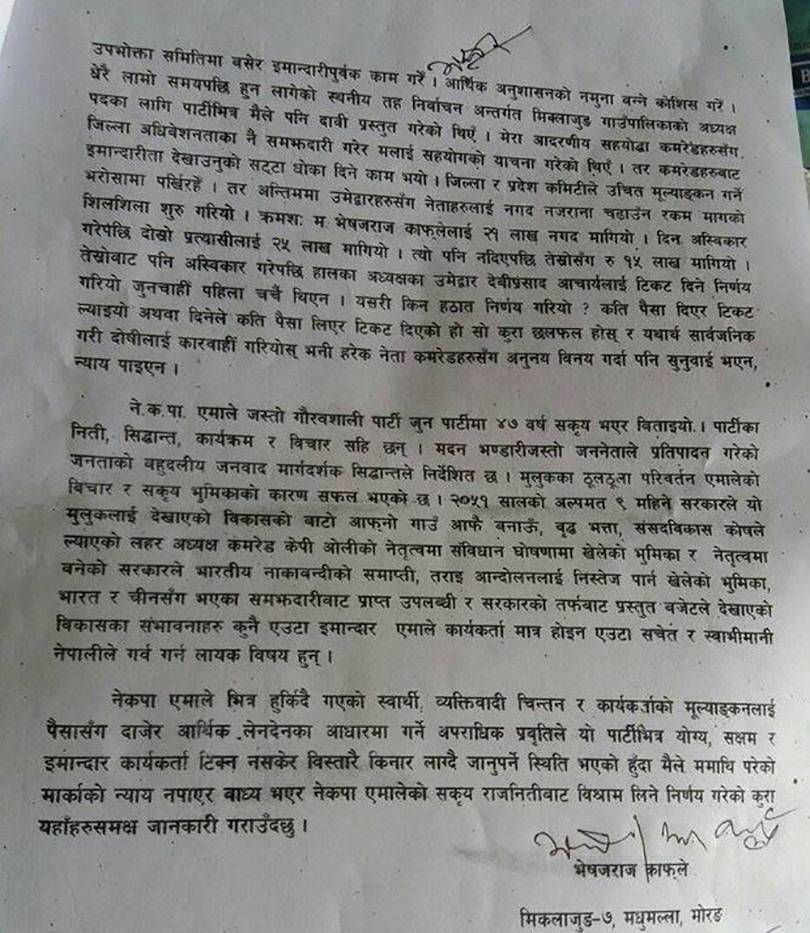 उपभोक्ता समितिमा बसेर इमान्दारीपुर्वक काम गरेँ । आर्थिक अनुशासनको नमुना बन्ने कोशिस गरेँ ।
धेरै लामो समयपछि हुन लागेको स्थनीय तह निर्वाचन अन्तर्गत मिक्लाजुड गाउँपालिकाको अध्यक्ष
पदका लागि पार्टीभित्र मैले पनि दावी प्रस्तुत गरेको थिएँ । मेरा आदरणीय सहयोद्धा कमरेडहरुसँग
जिल्ला अधिवेशनताका नै समझदारी गरेर मलाई सहयोगको याचना गरेको थिएँ । तर कमरेडहरुबाट
इमान्दारीता देखाउनुको सट्टा धोका दिने काम भयो । जिल्ला र प्रदेश कमिटीले उचित मूल्याङ्कन गर्ने
भरोसामा पर्खिरहेँ । तर अन्तिममा उमेद्वारहरुसँग नेताहरुलाई नगद नजराना चढाउँन रकम मागको
शिलशिला शुरु गरियो । क्रमशः म भेषजराज काफ्लेलाई २१ लाख नगद मागियो । दिन अस्विकार
गरेपछि दोस्रो प्रत्यासीलाई २५ लाख मागियो । त्यो पनि नदिएपछि तेस्रोसँग रु १५ लाख मागियो ।
तेस्रोवाट पनि अस्विकार गरेपछि हालका अध्यक्षका उमेद्वार देवीप्रसाद आचार्यलाई टिकट दिने निर्णय
गरियो जुनचाहीं पहिला चर्चै थिएन । यसरी किन हठात निर्णय गरियो ? कति पैसा दिएर टिकट
ल्याइयो अथवा दिनेले कति पैसा लिएर टिकट दिएको हो सो कुरा छलफल होस् र यथार्थ सार्वजनिक
गरी दोषीलाई कारवाहीं गरियोस् भनी हरेक नेता कमरेडहरुसँग अनुनय विनय गर्दा पनि सुनुवाई भएन,
न्याय पाइएन ।
ने.क.पा. एमाले जस्तो गौरवशाली पार्टी जुन पार्टीमा ४७ वर्ष सकृय भएर विताइयो । पार्टीका
निती, सिद्धान्त, कार्यक्रम र विचार सहि छन् । मदन भण्डारीजस्तो जननेताले प्रतिपादन गरेको
जनताको वहुदलीय जनवाद मार्गदर्शक सिद्धान्तले निर्देशित छ । मुलुकका ठूलठूला परिवर्तन एमालेको
विचार र सकृय भुमिकाको कारण सफल भएको छ । २०५१ सालको अल्पमत ९ महिने सरकारले यो
मुलुकलाई देखाएको विकासको बाटो आफ्नो गाउँ आफै बनाऊँ, वृद्व भत्ता, संसदविकास कोषले
ल्याएको लहर अध्यक्ष कमरेड केपी ओलीको नेतृत्वमा संविधान घोषणामा खेलेको भुमिका र नेतृत्वमा
बनेको सरकारले भारतीय नाकाबन्दीको समाप्ती, तराइ आन्दोलनलाई निस्तेज पार्न खेलेको भुमिका,
भारत र चीनसँग भएका समझदारीबाट प्राप्त उपलब्धी र सरकारको तर्फबाट प्रस्तुत बजेटले देखाएको
विकासका संभावनाहरु कुनै एउटा इमान्दार एमाले कार्यकर्ता मात्र होइन एउटा सचेत र स्वाभीमानी
नेपालीले गर्व गर्न लायक विषय हुन् ।
नेकपा एमाले भित्र हुर्किदै गएको स्वार्थी, व्यक्तिवादी चिन्तन र कार्यकर्ताको मूल्याङ्कनलाई
पैसासँग दाजेर आर्थिक लेनदेनका आधारमा गर्ने अपराधिक प्रवृतिले यो पार्टीभित्र योग्य, सक्षम र
इमान्दार कार्यकर्ता टिक्न नसकेर विस्तारै किनार लाग्दै जानुपर्ने स्थिति भएको हुँदा मैले ममाथि परेको
मार्काको न्याय नपाएर वाध्य भएर नेकपा एमालेको सकृय राजनितीबाट विश्राम लिने निर्णय गरेको कुरा
यहाँहरुसमक्ष जानकारी गराउँदछु ।
भेषजराज काफ्ले
मिकलाजुड-७, मधुमल्ला, मोरङ